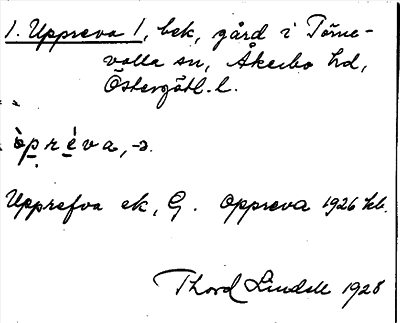 1. Uppreva 1, bek, gård i Törne-
valla sn, Åkerbo hd,
Östergötl. l.
òpréva, -ɔ.
Upprefva ek, G. Oppreva 1926 kb.
Thord Lindell 1928